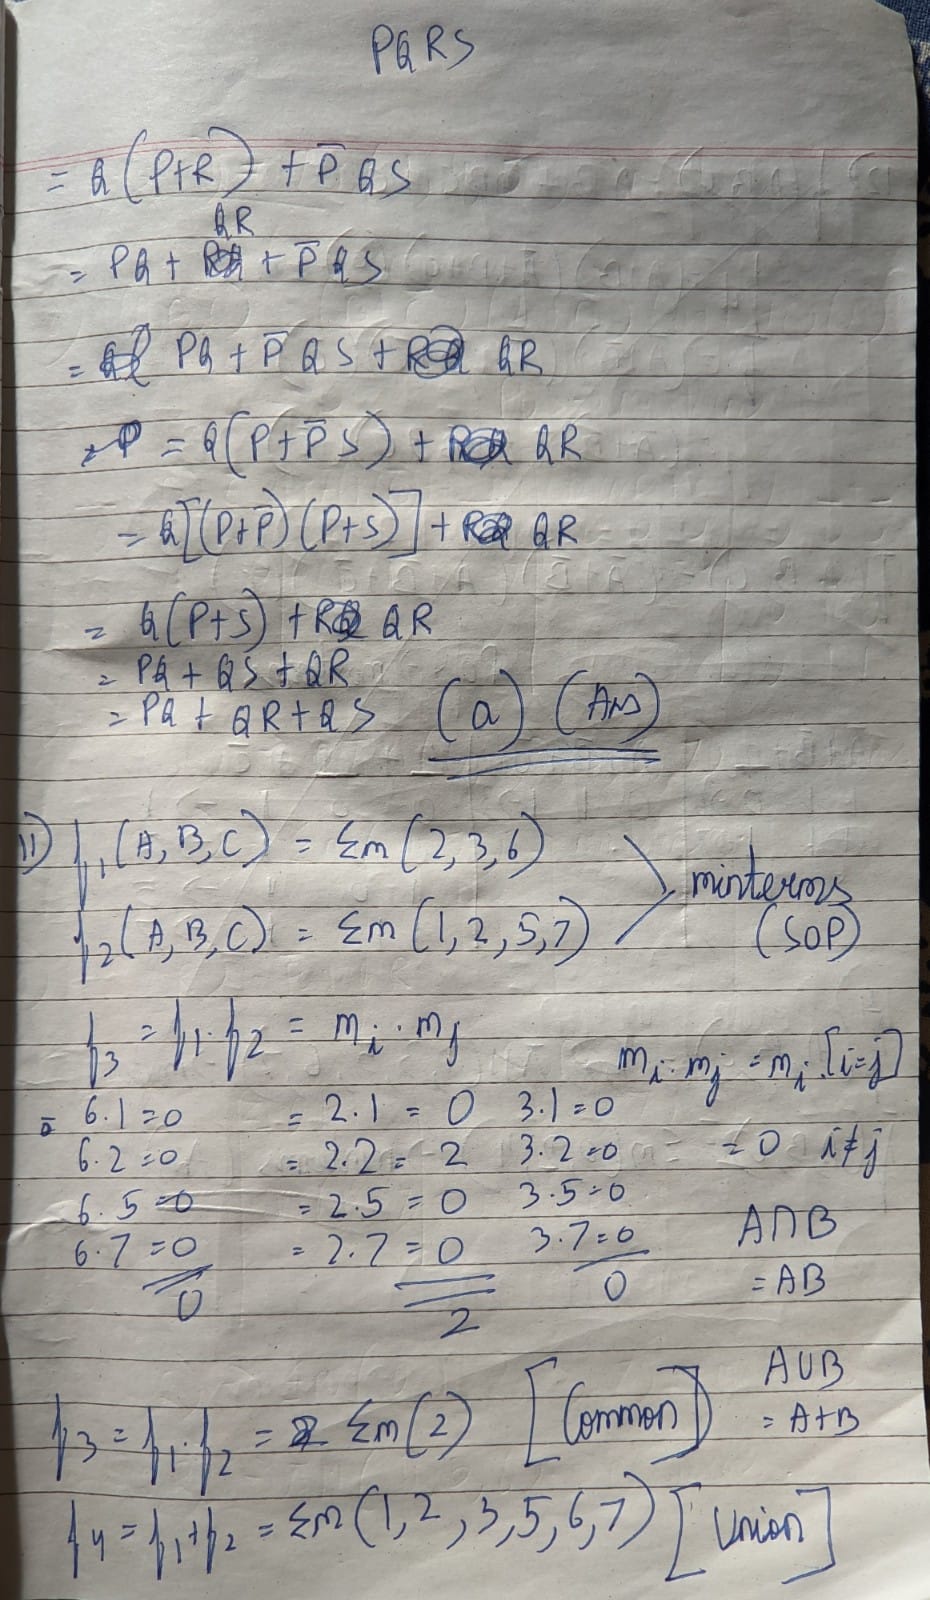 PQRS
= Q(P+R) + P̄QS
QR
= PQ + + P̄QS
= PQ + P̄QS + QR
= Q(P+P̄S) + QR
= Q[(P+P̄)(P+S)] + QR
= Q(P+S) + QR
= PQ + QS + QR
= PQ + QR + QS (a) (Ans)
11) f₁(A,B,C) = Σm(2,3,6)
minterms
f₂(A,B,C) = Σm(1,2,5,7) (SOP)
f₃ = f₁.f₂ = mᵢ.mⱼ
mᵢ.mⱼ = mᵢ [i=j]
6.1=0 = 2.1 = 0 3.1=0
6.2=0 = 2.2 = 2 3.2=0 = 0 i≠j
6.5=0 = 2.5 = 0 3.5=0
6.7=0 = 2.7 = 0 3.7=0 A∩B
0 2 0 = AB
A∪B
f₃ = f₁.f₂ = Σm(2) [Common] = A+B
f₄ = f₁+f₂ = Σm(1,2,3,5,6,7) [Union]